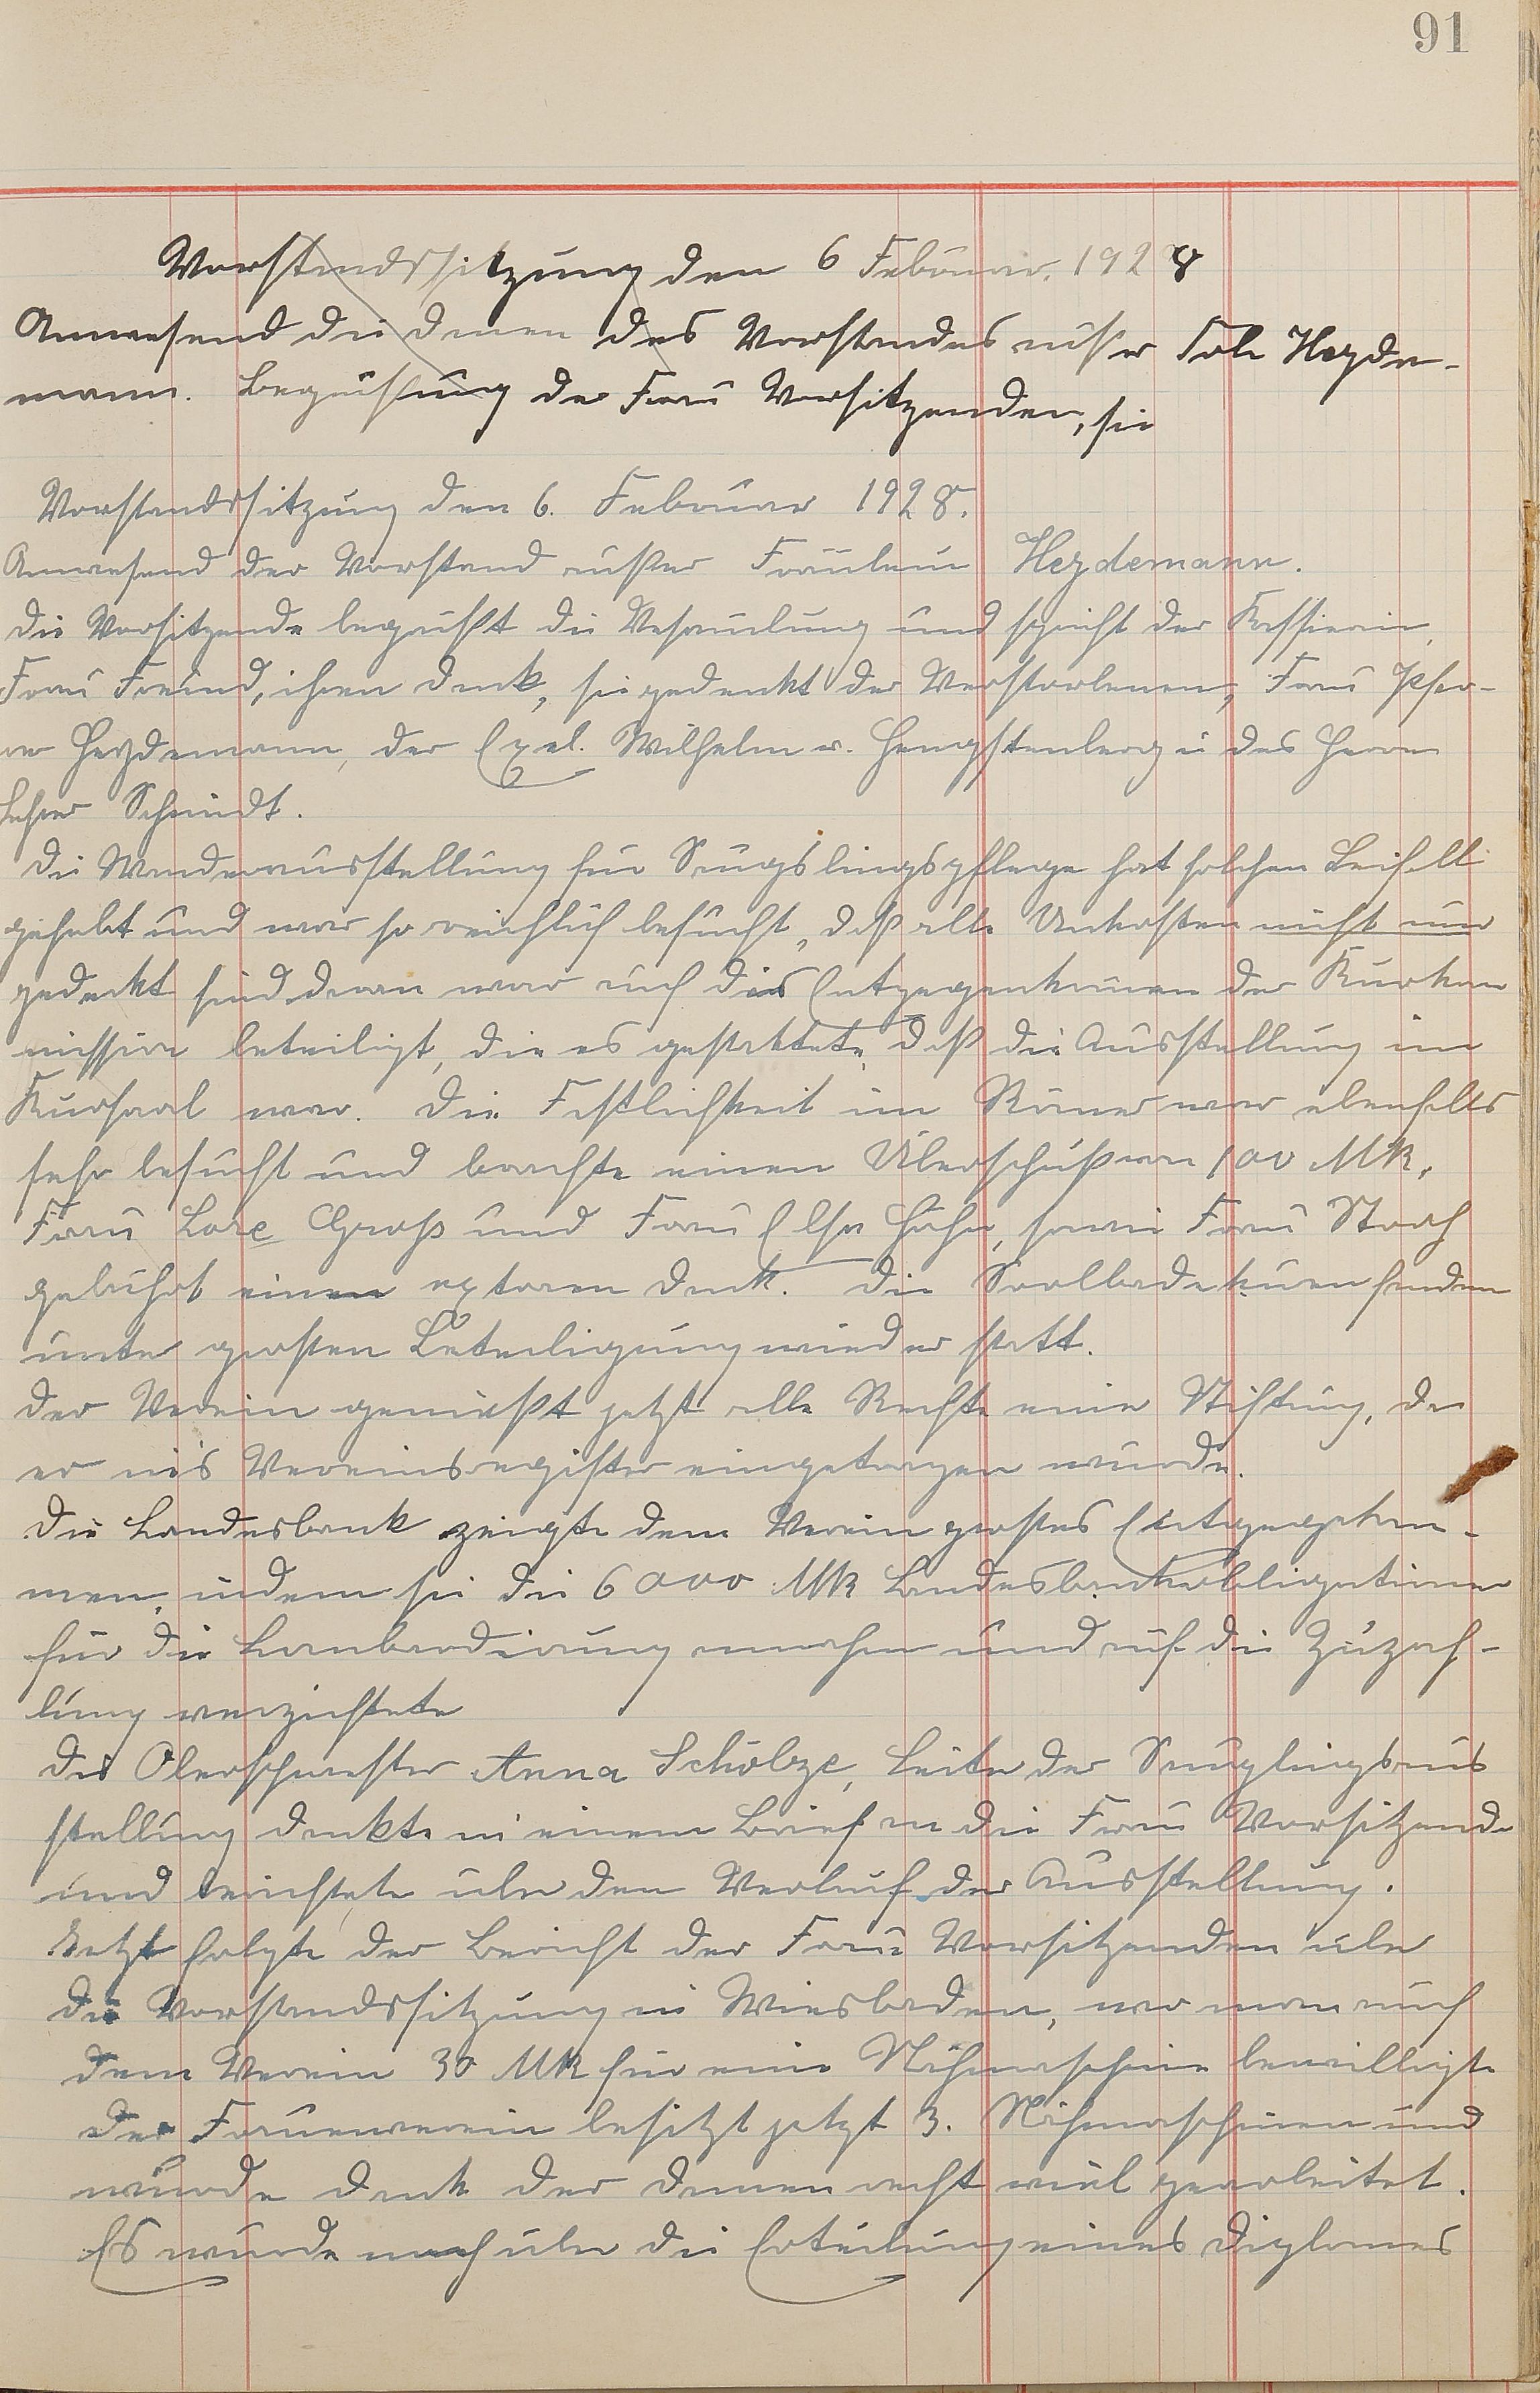 91
Vorstandssitzung den 6 Februar. 1928
Anwesend die Damen des Vorstandes außer Frl. Heyde-
mann. Begrüßung der Frau Vorsitzenden, sie
Vorstandssitzung den 6. Februar 1928.
Anwesend der Vorstand außer Fräulein Heydemann.
Die Vorsitzende begrüßt die Versamlung und spricht der Kassierin,
Frau Freund, ihren Dank, sie gedenkt der Verstorbenen, Frau Pfar-
rer Heydemann, der Exel. Wilhelm v. Hengstenberg u des Herrn
Lehrer Schmidt.
Die Wanderausstellung für Säugslingspflege hat solchen Beifall
gehabt und war so reichlich besucht, daß alle Unkosten nicht nur
gedeckt sind daran war auch das Entgegenkommen der Kurkom
mission beteiligt, die es gestattete, daß die Ausstellung im
Kursaal war. Die Festlichkeit im Römer war ebenfalls
sehr besucht und brachte einen Überschuß von 100 Mk,
Frau Lore Groß und Frau Elsa Hahn, sowie Frau Storch
gebührt einen extraen Dank. Die Soolbadekuren fanden
unter großen Beteiligung wieder statt.
Der Verein genießt jetzt alle Rechte einer Stiftung, da
er ins Vereinsregister eingetragen wurde.
Die Landesbank zeigte dem Verein großes Entgegekom-
men, indem sie die 6000 Mk Landesbankobligationen
für die Lombardierung nahm und auf die Zuzah-
lung verzichtete
Die Oberschwester Anna Scholze, Leiter der Säuglingsaus
stellung dankte in einem Brief an die Frau Vorsitzende
und berichtete über den Verlauf der Ausstellung.
Jetzt folgte der Bericht der Frau Vorsitzenden über
die Vorstandssitzung in Wiesbaden, wo man auch
dem Verein 30 Mk für eine Nähmaschine bewilligte
Der Frauenverein besitzt jetzt 3. Nähmaschinen und
wurde dank der Damen recht viel gearbeitet.
Es wurde noch über die Erteilung eines Diplomes